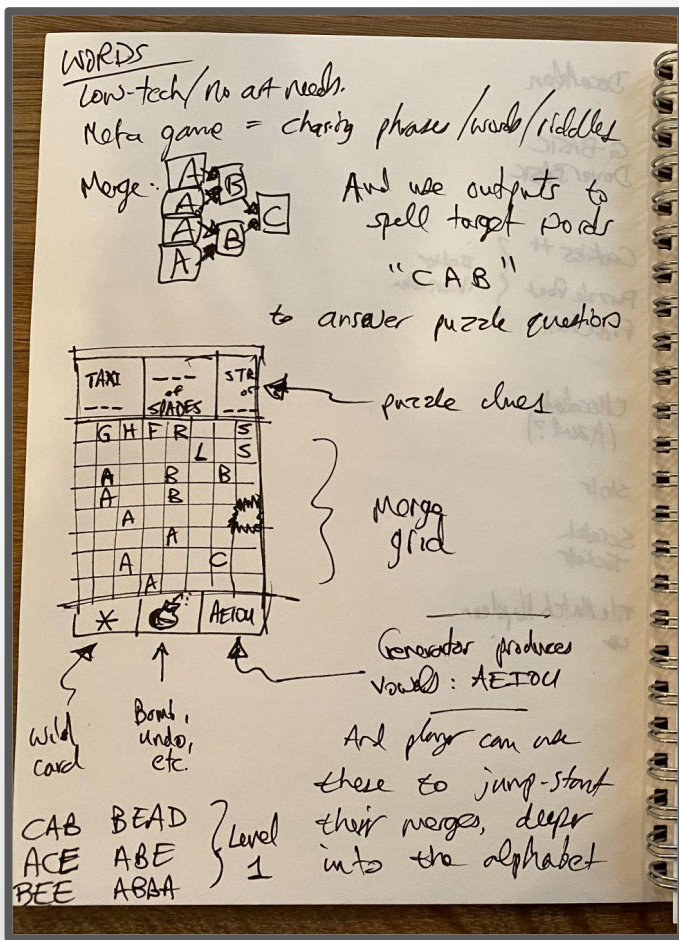 WORDS
Low-tech/no art needs.
Meta game = chasing phrases/words/riddles
Merge:
A
A B
A C
A B
And use outputs to
spell target words
"CAB"
to answer puzzle questions
TAXI
---
---
of
SPADES
STR
or
---
puzzle clues
G H F R S
L S
A B B
A B
A
A
A C
A
Merge
grid
* AEIOU
Generator produces
vowels: AEIOU
Wild
card
Bomb,
undo,
etc.
And player can use
these to jump-start
their merges, deeper
into the alphabet
CAB BEAD
ACE ABE
BEE ABBA
Level
1